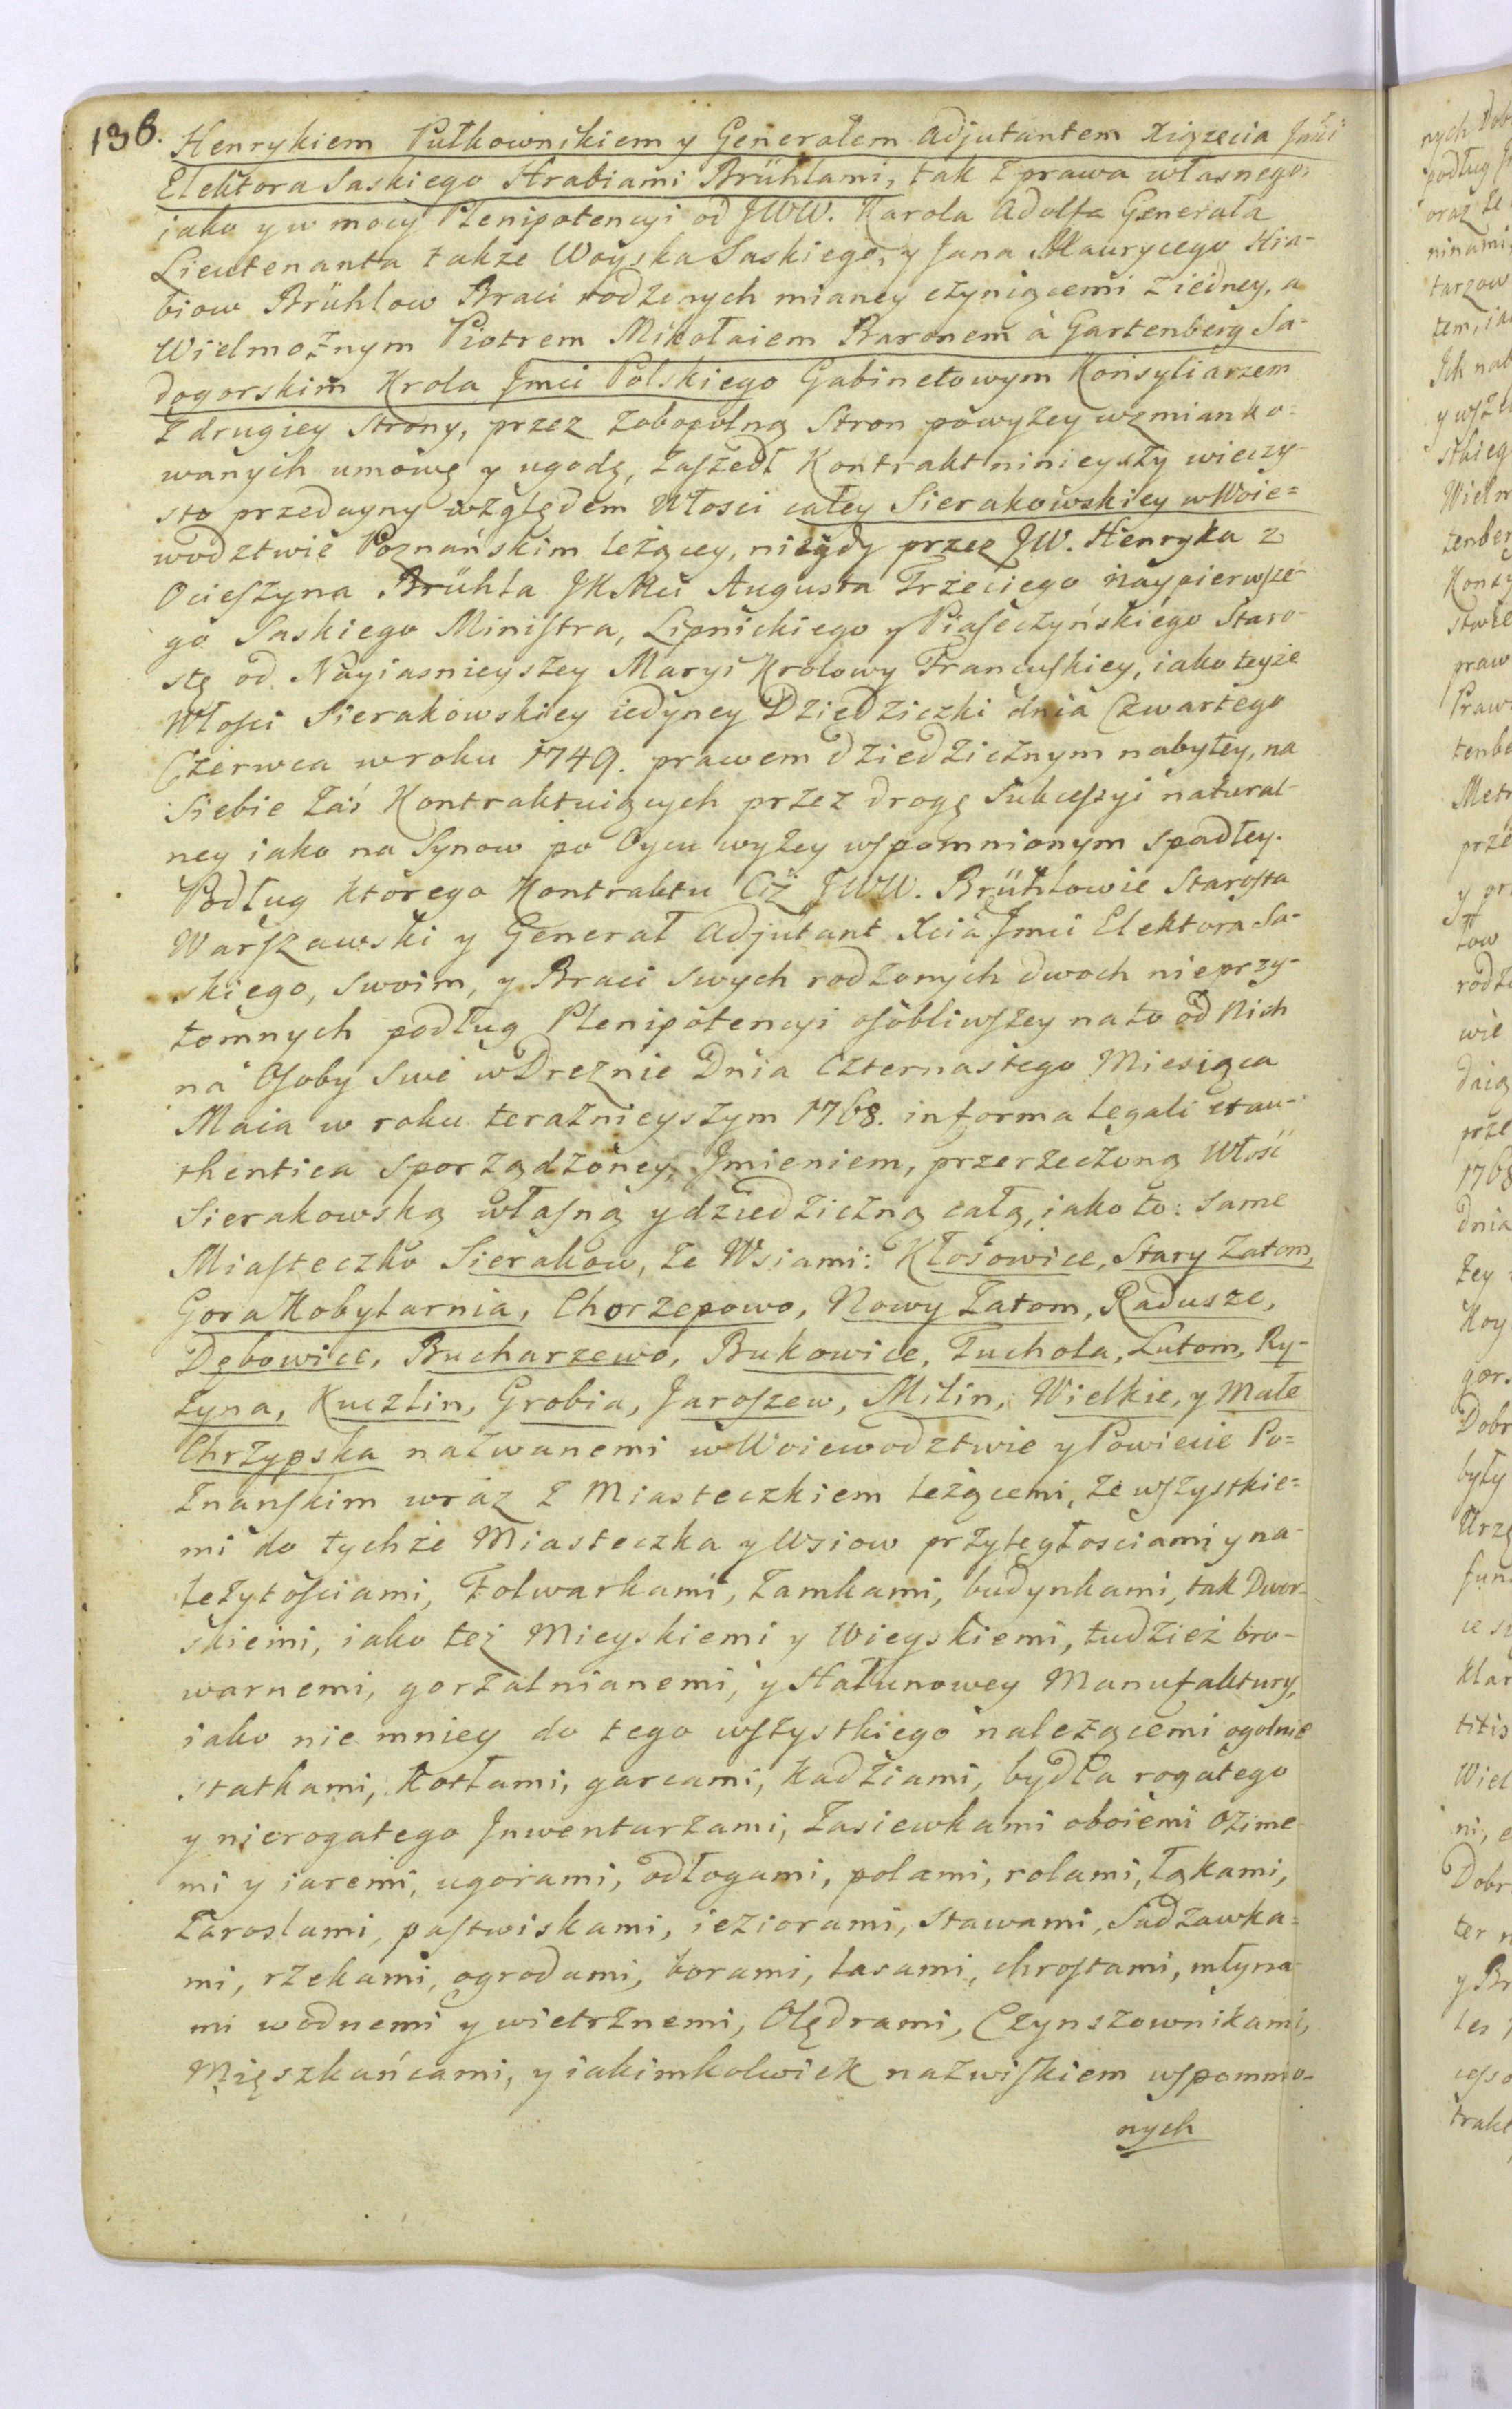 136.
Henrykiem Pułkownikiem y Generałem Adjutantem Xiązęcia Jmći
Elektora Saskiego Hrabiami Brühlami, tak z prawa własnego,
iako y w mocy Plenipotencyi od JWW. Karola Adolfa Generała
Lieutenanta także Woyska Saskiego, y Jana Maurycego Hra-
biow Brühlow Braci rodzonych mianey czyniącemi z iedney, a
Wielmożnym Piotrem Mikołaiem Baronem à Gartenberg Sa-
dogorskim Krola Jmci Polskiego Gabinetowym Konsyliarzem
z drugiey Strony, przez zobopolną Stron powyżey wzmianko-
wanych umowę y ugodę, zaszedł Kontrakt ninieyszy wieczy-
sto przedayny względem Włosci całey Sierakowskiey w Woie=
wodztwie Poznańskim leżącey, niegdy przez JW. Henryka z
Ocieszyna Brühla JKMci Augusta Trzeciego naypierwsze-
go Saskiego Ministra, Lipnickiego y Piaseczyńskiego Staro-
stę od Nayiasnieyszey Maryi Krolowy Francuskiey, iako teyże
Włosci Sierakowskiey iedyney Dziedziczki dnia Czwartego
Czerwca w roku 1749. prawem dziedzicznym nabyłey, na
siebie zaś Kontraktuiących przez drogę Sukcessyi natural-
ney iako na Synow po Oycu wyżey wspomnionym spadłey.
Podług ktorego Kontraktu Ciż JWW. Brühlowie Starosta
Warszawski y Generał Adjutant Xcia Jmci Elektora Sa-
skiego, swoim, y Braci swych rodzonych dwoch nieprzy-
tomnych podług Plenipotencyi osobliwszey na to od Nich
na Osoby Swe w Dreznie Dnia Czternastego Miesiąca
Maia w roku teraznieyszym 1768. in forma legali et au-
thentica sporządzoney, Jmieniem, przerzeczoną Włość
Sierakowską własną y dziedziczną całą, iako to: same
Miasteczko Sierakow, ze Wsiami: Kłosowice, Stary Zatom,
Gora Kobylarnia, Chorzepowo, Nowy Zatom, Radusze,
Dębowice, Bucharzewo, Bukowice, Tuchola, Lutom, Ry-
żyna, Kuczlin, Grobia, Jaroszew, Milin, Wielkie, y Małe
Chrzypska nazwanemi w Woiewodztwie y Powiecie Po=
znanskim wraz z Miasteczkiem leżącemi, ze wszystkie=
mi do tychże Miasteczka y Wsiow przyległosciami y na-
leżytościami, Folwarkami, Zamkami, budynkami, tak Dwor-
skiemi, iako też Mieyskiemi y Wieyskiemi, tudzież bro-
warnemi, gorzalnianemi, y Hałunowey Manufaktury,
iako nie mniey do tego wszystkiego należącemi ogolnie
statkami, kotłami, garcami, kadziami, bydła rogatego
y nierogatego Jnwentarzami, zasiewkami oboiemi ozime-
mi y iaremi, ugorami, odłogami, polami, rolami, łąkami,
zaroslami, pastwiskami, ieziorami, stawami, sadzawka=
mi, rzekami, ogrodami, borami, lasami, chrostami, młyna-
mi wodnemi y wietrznemi, Olędrami, Czynszownikami,
Mięszkańcami, y iakimkolwiek nazwiskiem wspomnio-
nych